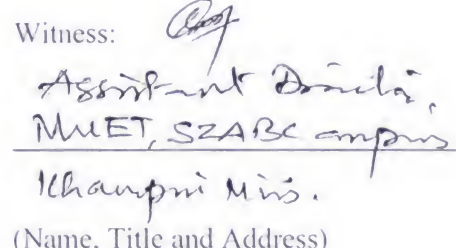 Witness:
Assistant Director,
MUET, SZABC campus
Khairpur Mirs.
(Name, Title and Address)